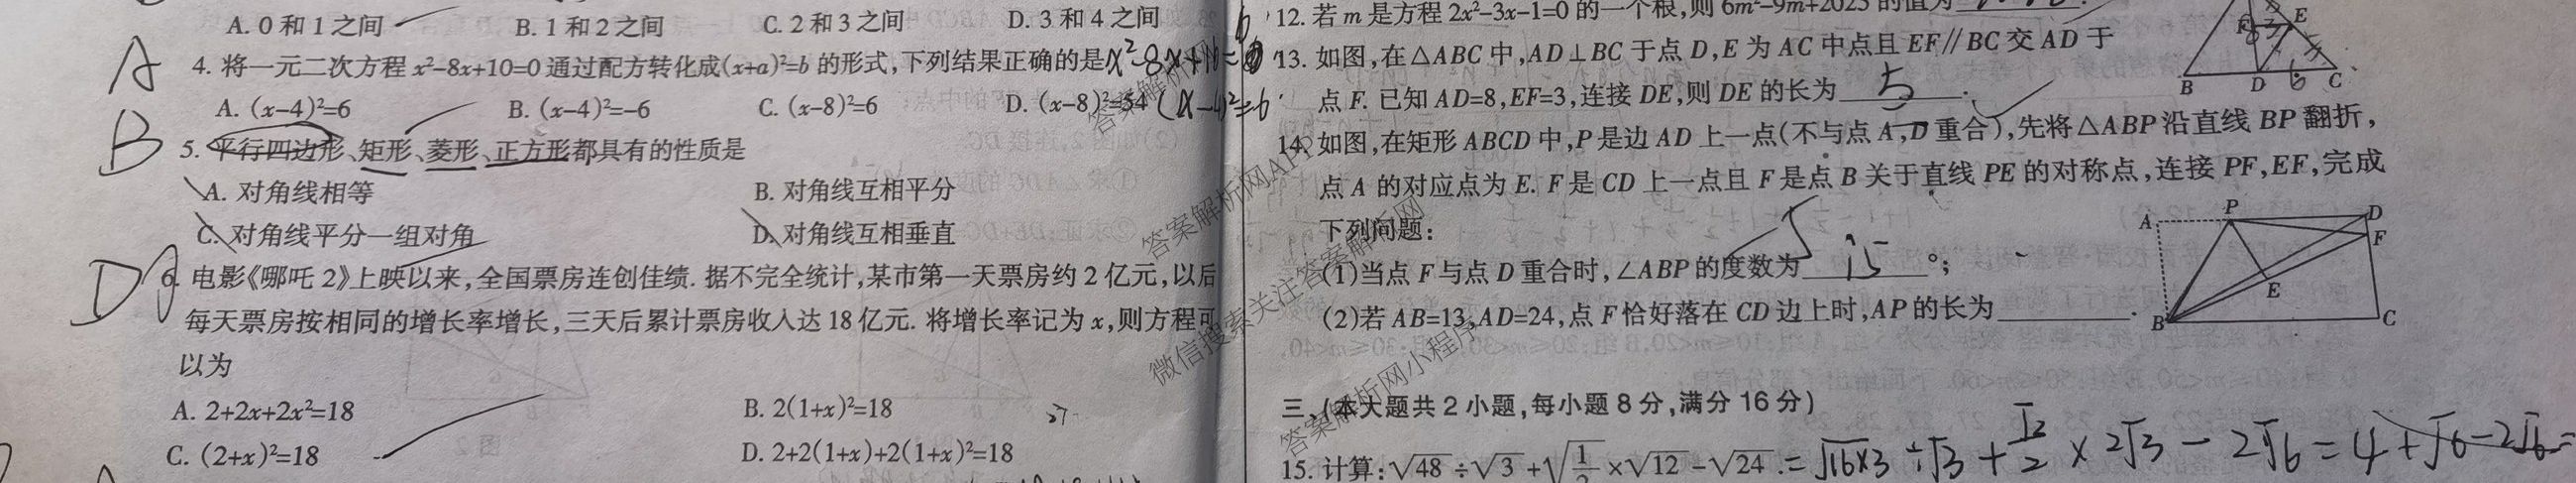 A. 0 和 1 之间 B. 1 和 2 之间 C. 2 和 3 之间 D. 3 和 4 之间
A 4. 将一元二次方程 x²-8x+10=0 通过配方转化成(x+a)²=b 的形式,下列结果正确的是
A. (x-4)²=6 B. (x-4)²=-6 C. (x-8)²=6 D. (x-8)²=54 (x-4)²=6
B 5. 平行四边形、矩形、菱形、正方形都具有的性质是
A. 对角线相等 B. 对角线互相平分
C. 对角线平分一组对角 D. 对角线互相垂直
D 6. 电影《哪吒 2》上映以来,全国票房连创佳绩. 据不完全统计,某市第一天票房约 2 亿元,以后
每天票房按相同的增长率增长,三天后累计票房收入达 18 亿元. 将增长率记为 x,则方程可
以为
A. 2+2x+2x²=18 B. 2(1+x)²=18
C. (2+x)²=18 D. 2+2(1+x)+2(1+x)²=18
12. 若 m 是方程 2x²-3x-1=0 的一个根,则 6m²-9m+2025 的值为
13. 如图,在△ABC 中,AD⊥BC 于点 D,E 为 AC 中点且 EF∥BC 交 AD 于
点 F. 已知 AD=8,EF=3,连接 DE,则 DE 的长为 5 .
E
B D 6 C
14. 如图,在矩形 ABCD 中,P 是边 AD 上一点(不与点 A,D 重合),先将△ABP 沿直线 BP 翻折,
点 A 的对应点为 E. F 是 CD 上一点且 F 是点 B 关于直线 PE 的对称点,连接 PF,EF,完成
下列问题:
(1)当点 F 与点 D 重合时,∠ABP 的度数为 °;
(2)若 AB=13,AD=24,点 F 恰好落在 CD 边上时,AP 的长为 .
A P D
F
E
B C
三、(本大题共 2 小题,每小题 8 分,满分 16 分)
15. 计算:√48÷√3+√(1/2)×√12-√24.=√(16×3)÷√3+√2/2×2√3-2√6=4+√6-2√6=
答案解析网APP
微信搜索关注答案解析网
答案解析网小程序